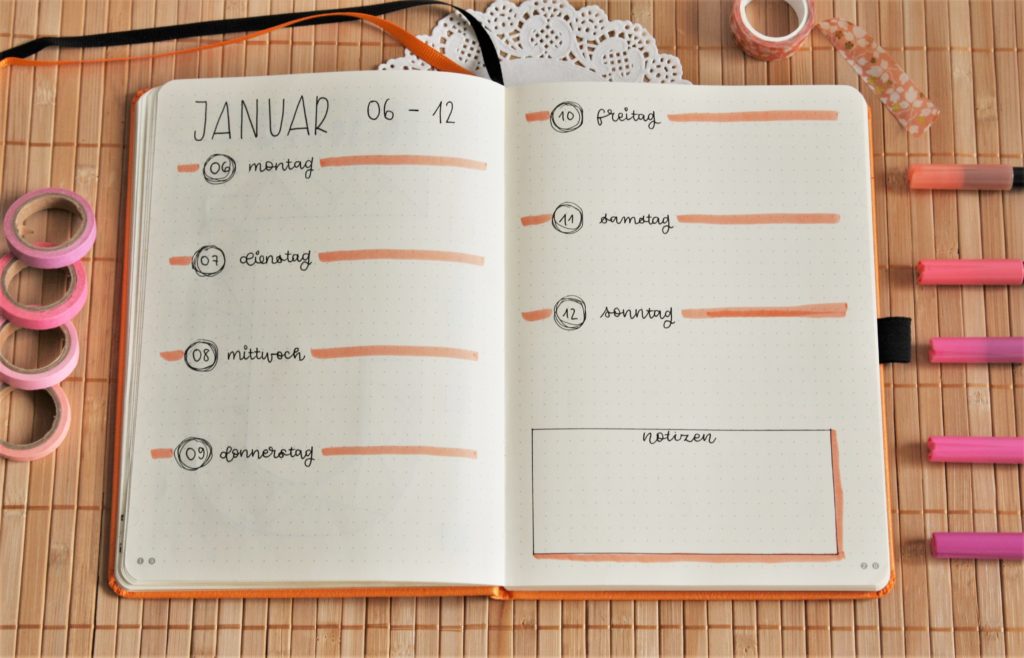 JANUAR 06 - 12
06 montag
07 dienstag
08 mittwoch
09 donnerstag
10 freitag
11 samstag
12 sonntag
notizen